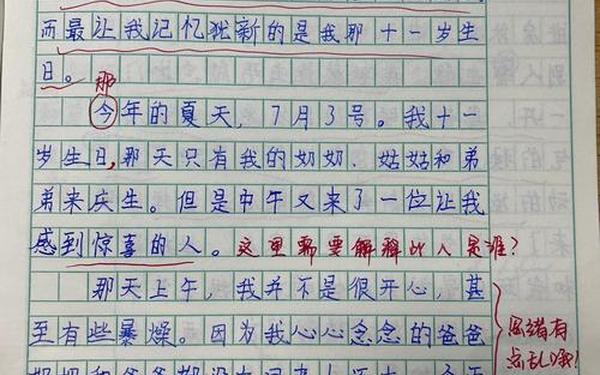 而最让我记忆犹新的是我那十一岁生
日。
那
今年的夏天，7月3号。我十一
岁生日，那天只有我的奶奶、姑姑和弟
弟来庆生。但是中午又来了一位让我
感到惊喜的人。这里需要解释此人是谁？
那天上午，我并不是很开心，甚
至有些暴燥。因为我心心念念的爸爸
思绪有
点乱哦！